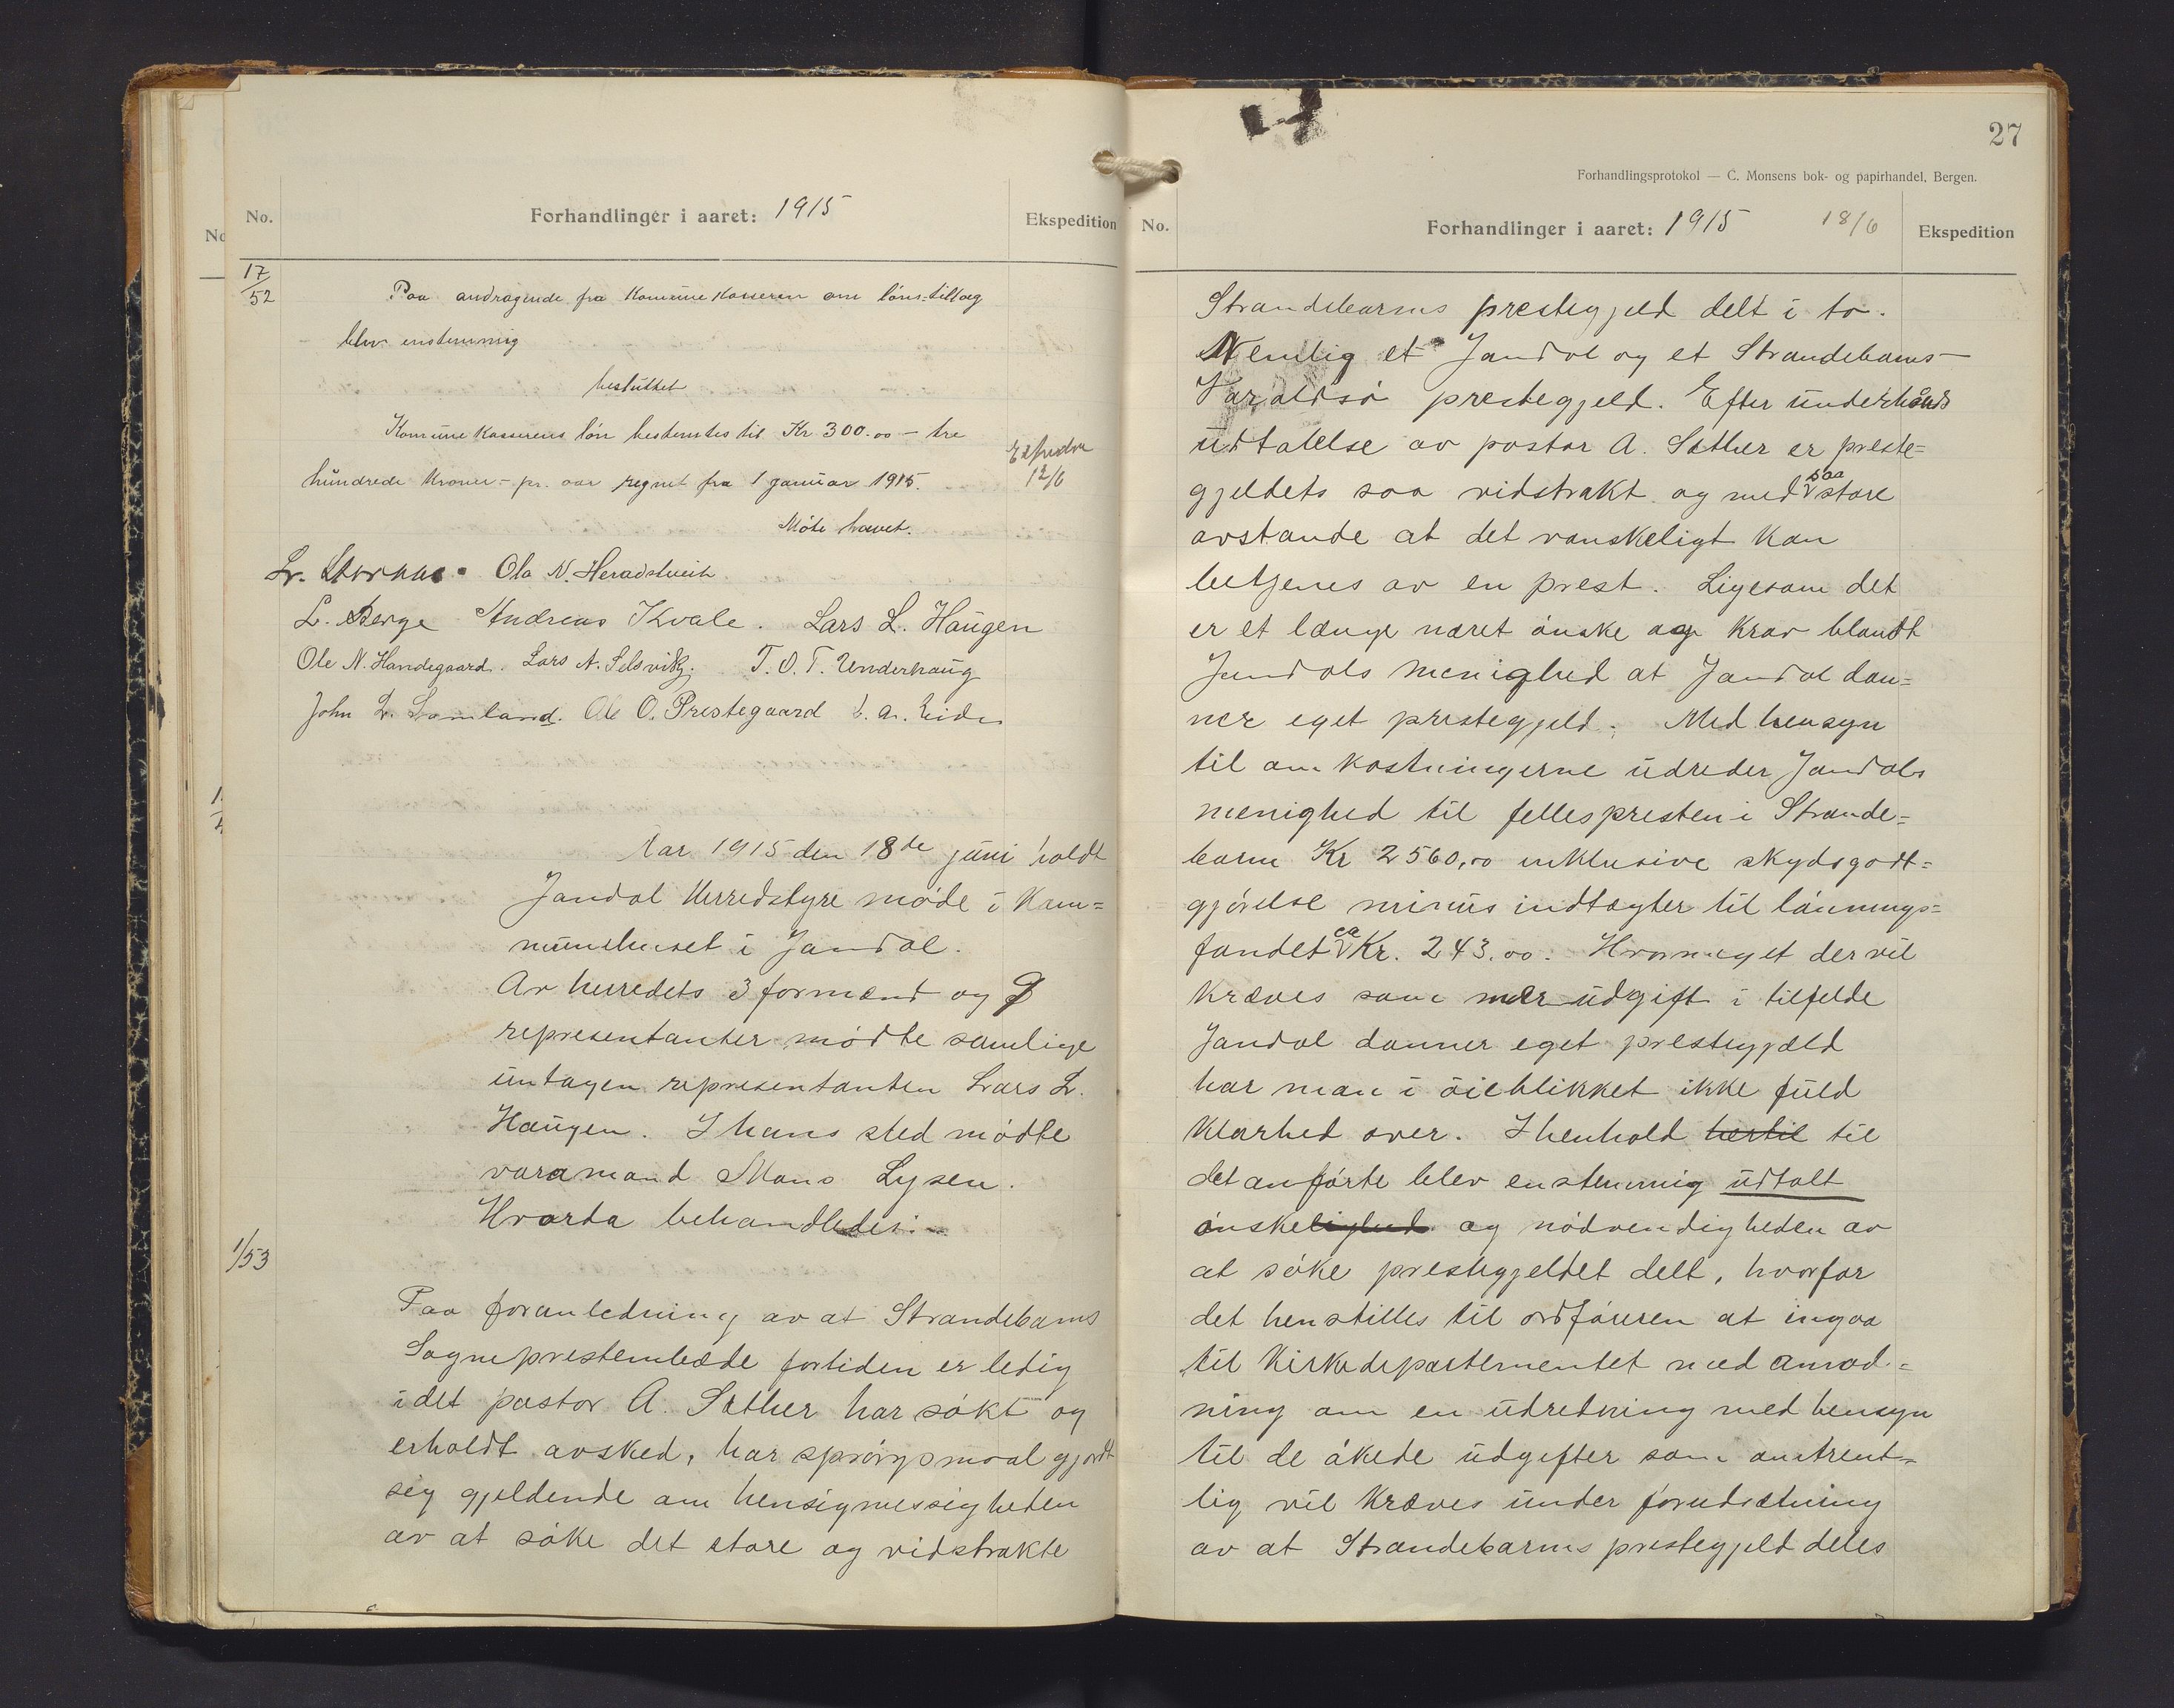 No.
Forhandlinger i aaret: 1915
Ekspedition
17/52
Paa andragende fra Kommunekasseren om löns-tillæg
blev enstemmig
besluttet
Kommunekasserens lön bestemtes til Kr 300.00 - tre
hundrede Kroner - pr. aar regnet fra 1 januar 1915.
12/6
Möte hævet.
Ola N. Heradstveit
L. Berge Andreas Kvale. Lars L. Haugen
Ole N. Handegaard. Lars N. Selsvik. T. O. T. Underhaug
John L. Samland. Ole O. Prestegaard
Aar 1915 den 18de juni holdt
Jondal Herredstyre møde i Kom=
munehuset i Jondal.
Av herredets 3 formænd og 9
representanter mødte samlige
untagen representanten Lars L.
Haugen. I hans sted mødte
varamand Mons Lysen.
Hvorda behandledes:-
1/53
Paa foranledning av at Strandebarms
Sogneprestembæde fortiden er ledig
idet pastor A. Sæther har søkt og
erholdt avsked, har spørgsmaal gjort
sig gjeldende om hensigmessigheden
av at søke det store og vidstrakte
27
Forhandlingsprotokol — C. Monsens bok- og papirhandel, Bergen.
No.
Forhandlinger i aaret: 1915
18/6
Ekspedition
Strandebarms prestegjeld delt i to.
Nemlig et Jondal og et Strandebarms-
Varaldsö prestegjeld. Efter underhånds
udtalelse av pastor A. Sæther er preste-
gjeldets saa vidstrakt og med saa store
avstande at det vanskeligt kan
betjenes av en prest. Ligesom det
er et længe næret ønske og krav blandt
Jondals menighed at Jondal dan-
ner eget prestegjeld. Med hensyn
til omkostningerne udreder Jondals
menighed til fellespresten i Strande-
barm Kr 2560,00 inklusive skydsgodt-
gjørelse minus indtægter til lønnings-
fondet ca Kr. 243.00. Hvormeget der vil
kræves som merudgift i tilfelde
Jondal danner eget prestegjeld
har man i øieblikket ikke fuld
klarhed over. I henhold hertil til
det anførte blev enstemmig udtalt
ønskelighed og nødvendigheden av
at søke prestegjeldet delt, hvorfor
det henstilles til ordføreren at ingaa
til Kirkedepartementet med anmod-
ning om en udredning med hensyn
til de økede udgifter som omtrent-
lig vil kræves under forudsætning
av at Strandebarms prestegjeld deles